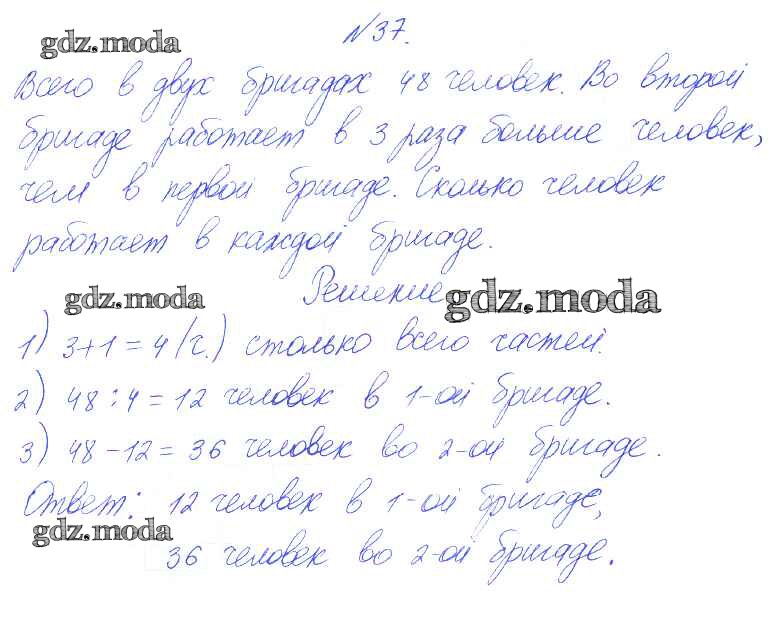 №37.
gdz.moda
Всего в двух бригадах 48 человек. Во второй
бригаде работает в 3 раза больше человек,
чем в первой бригаде. Сколько человек
работает в каждой бригаде.
Решение
gdz.moda
gdz.moda
1) 3+1=4 (ч.) столько всего частей.
2) 48:4=12 человек в 1-ой бригаде.
3) 48-12=36 человек во 2-ой бригаде.
Ответ: 12 человек в 1-ой бригаде,
gdz.moda
36 человек во 2-ой бригаде.